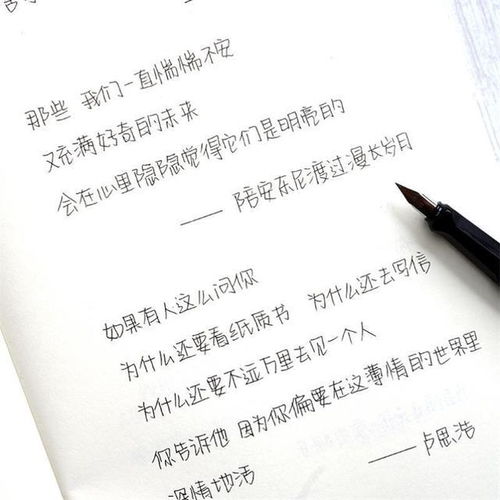 那些 我们一直惴惴不安
又充满好奇的未来
会在心里隐隐觉得它们是明亮的
—— 陪安东尼渡过漫长岁月
如果有人这么问你
为什么还要看纸质书 为什么还去写信
为什么还要不远万里去见一个人
你告诉他 因为你偏要在这薄情的世界里
深情地活 —— 卢思浩